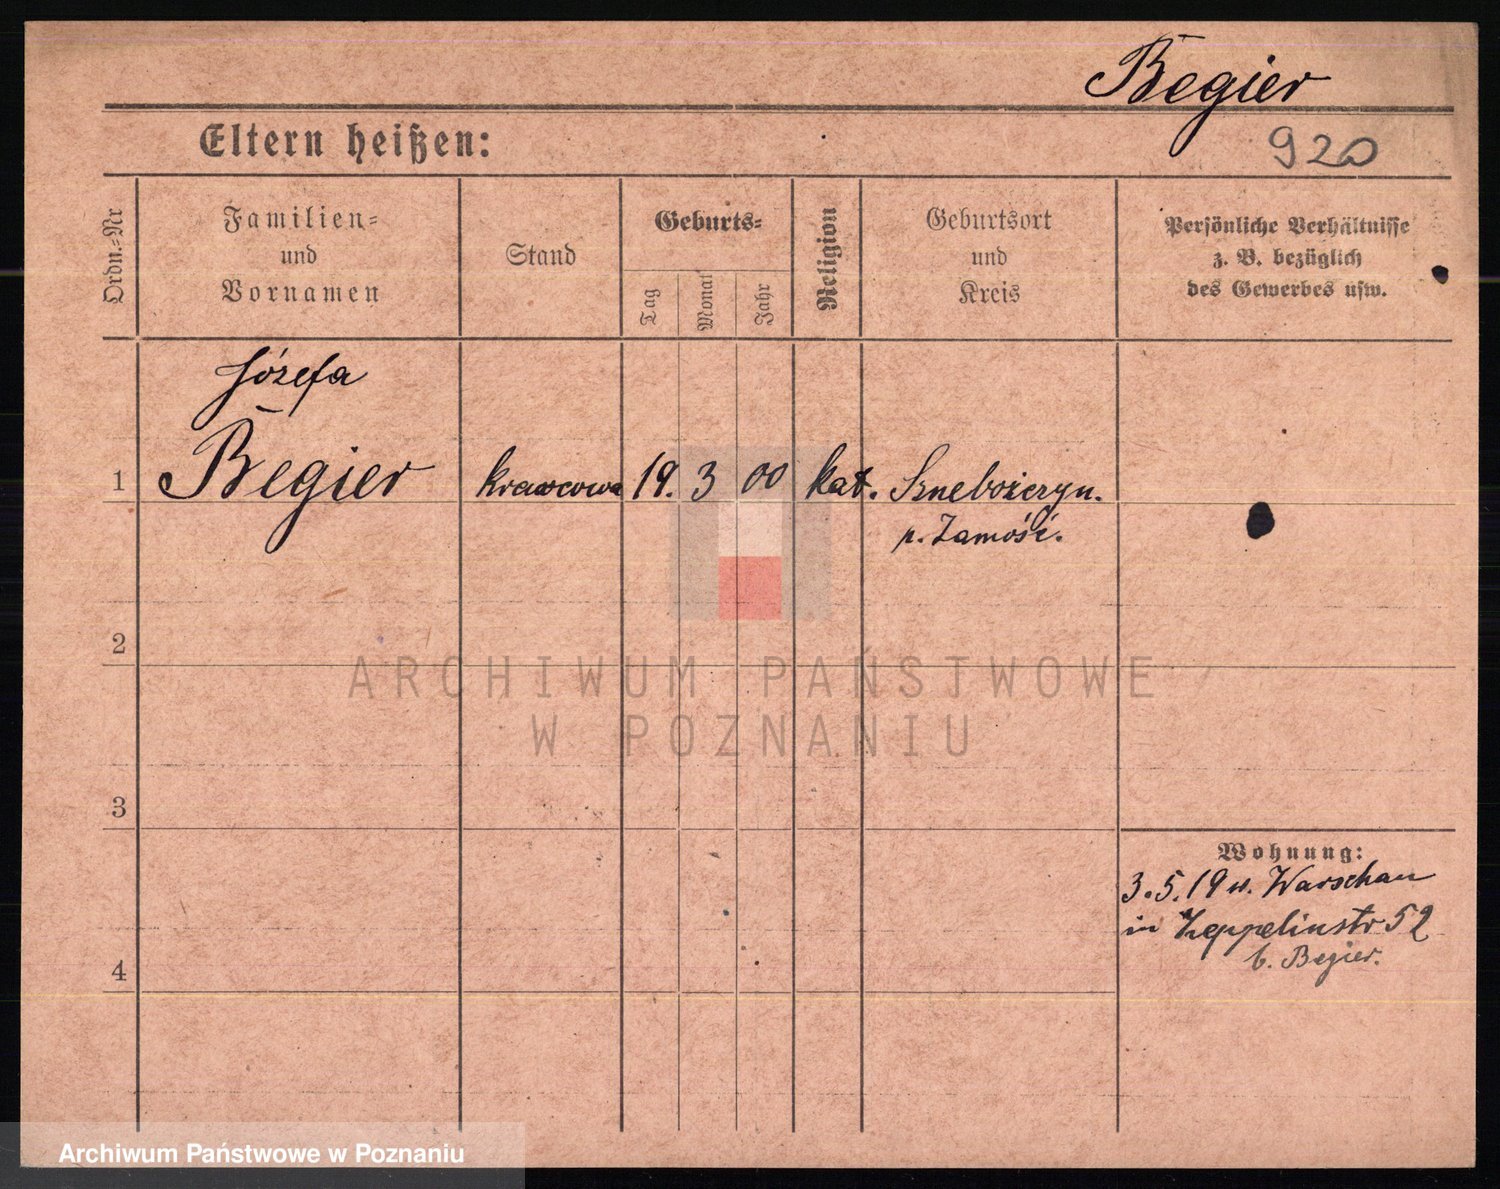 Begier
Eltern heißen:
920
Ordn.=Nr
Familien=
und
Vornamen
Stand
Geburts=
Tag
Monat
Jahr
Religion
Geburtsort
und
Kreis
Persönliche Verhältnisse
z. B. bezüglich
des Gewerbes usw.
Józefa
1 Begier krawcowa 19. 3 00 kat.
p. Zamość.
2
ARCHIWUM PAŃSTWOWE
W POZNANIU
3
Wohnung:
3.5.19 v. Warschau
in Zeppelinstr 52
b. Begier.
4
Archiwum Państwowe w Poznaniu